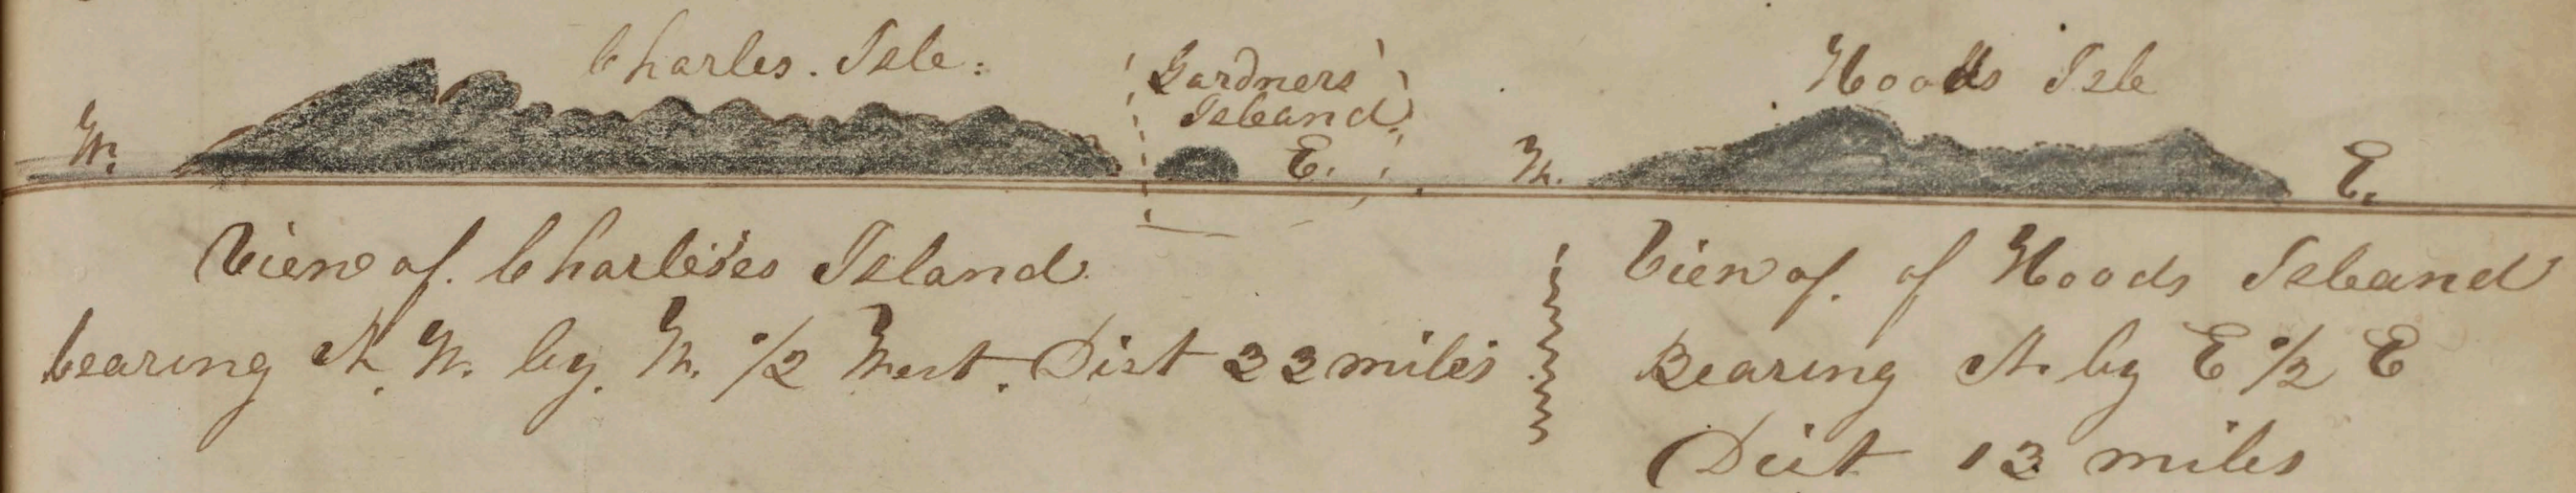 Charles. Isle:
Gardners
Isleand
Hoods Isle
W.
E.
W.
E.
View of. Charleses Island
bearing N. W. by. W. 1/2 West. Dist 22 miles
View of. of Hoods Isleand
Bearing N. by E 1/2 E
Dist 13 miles